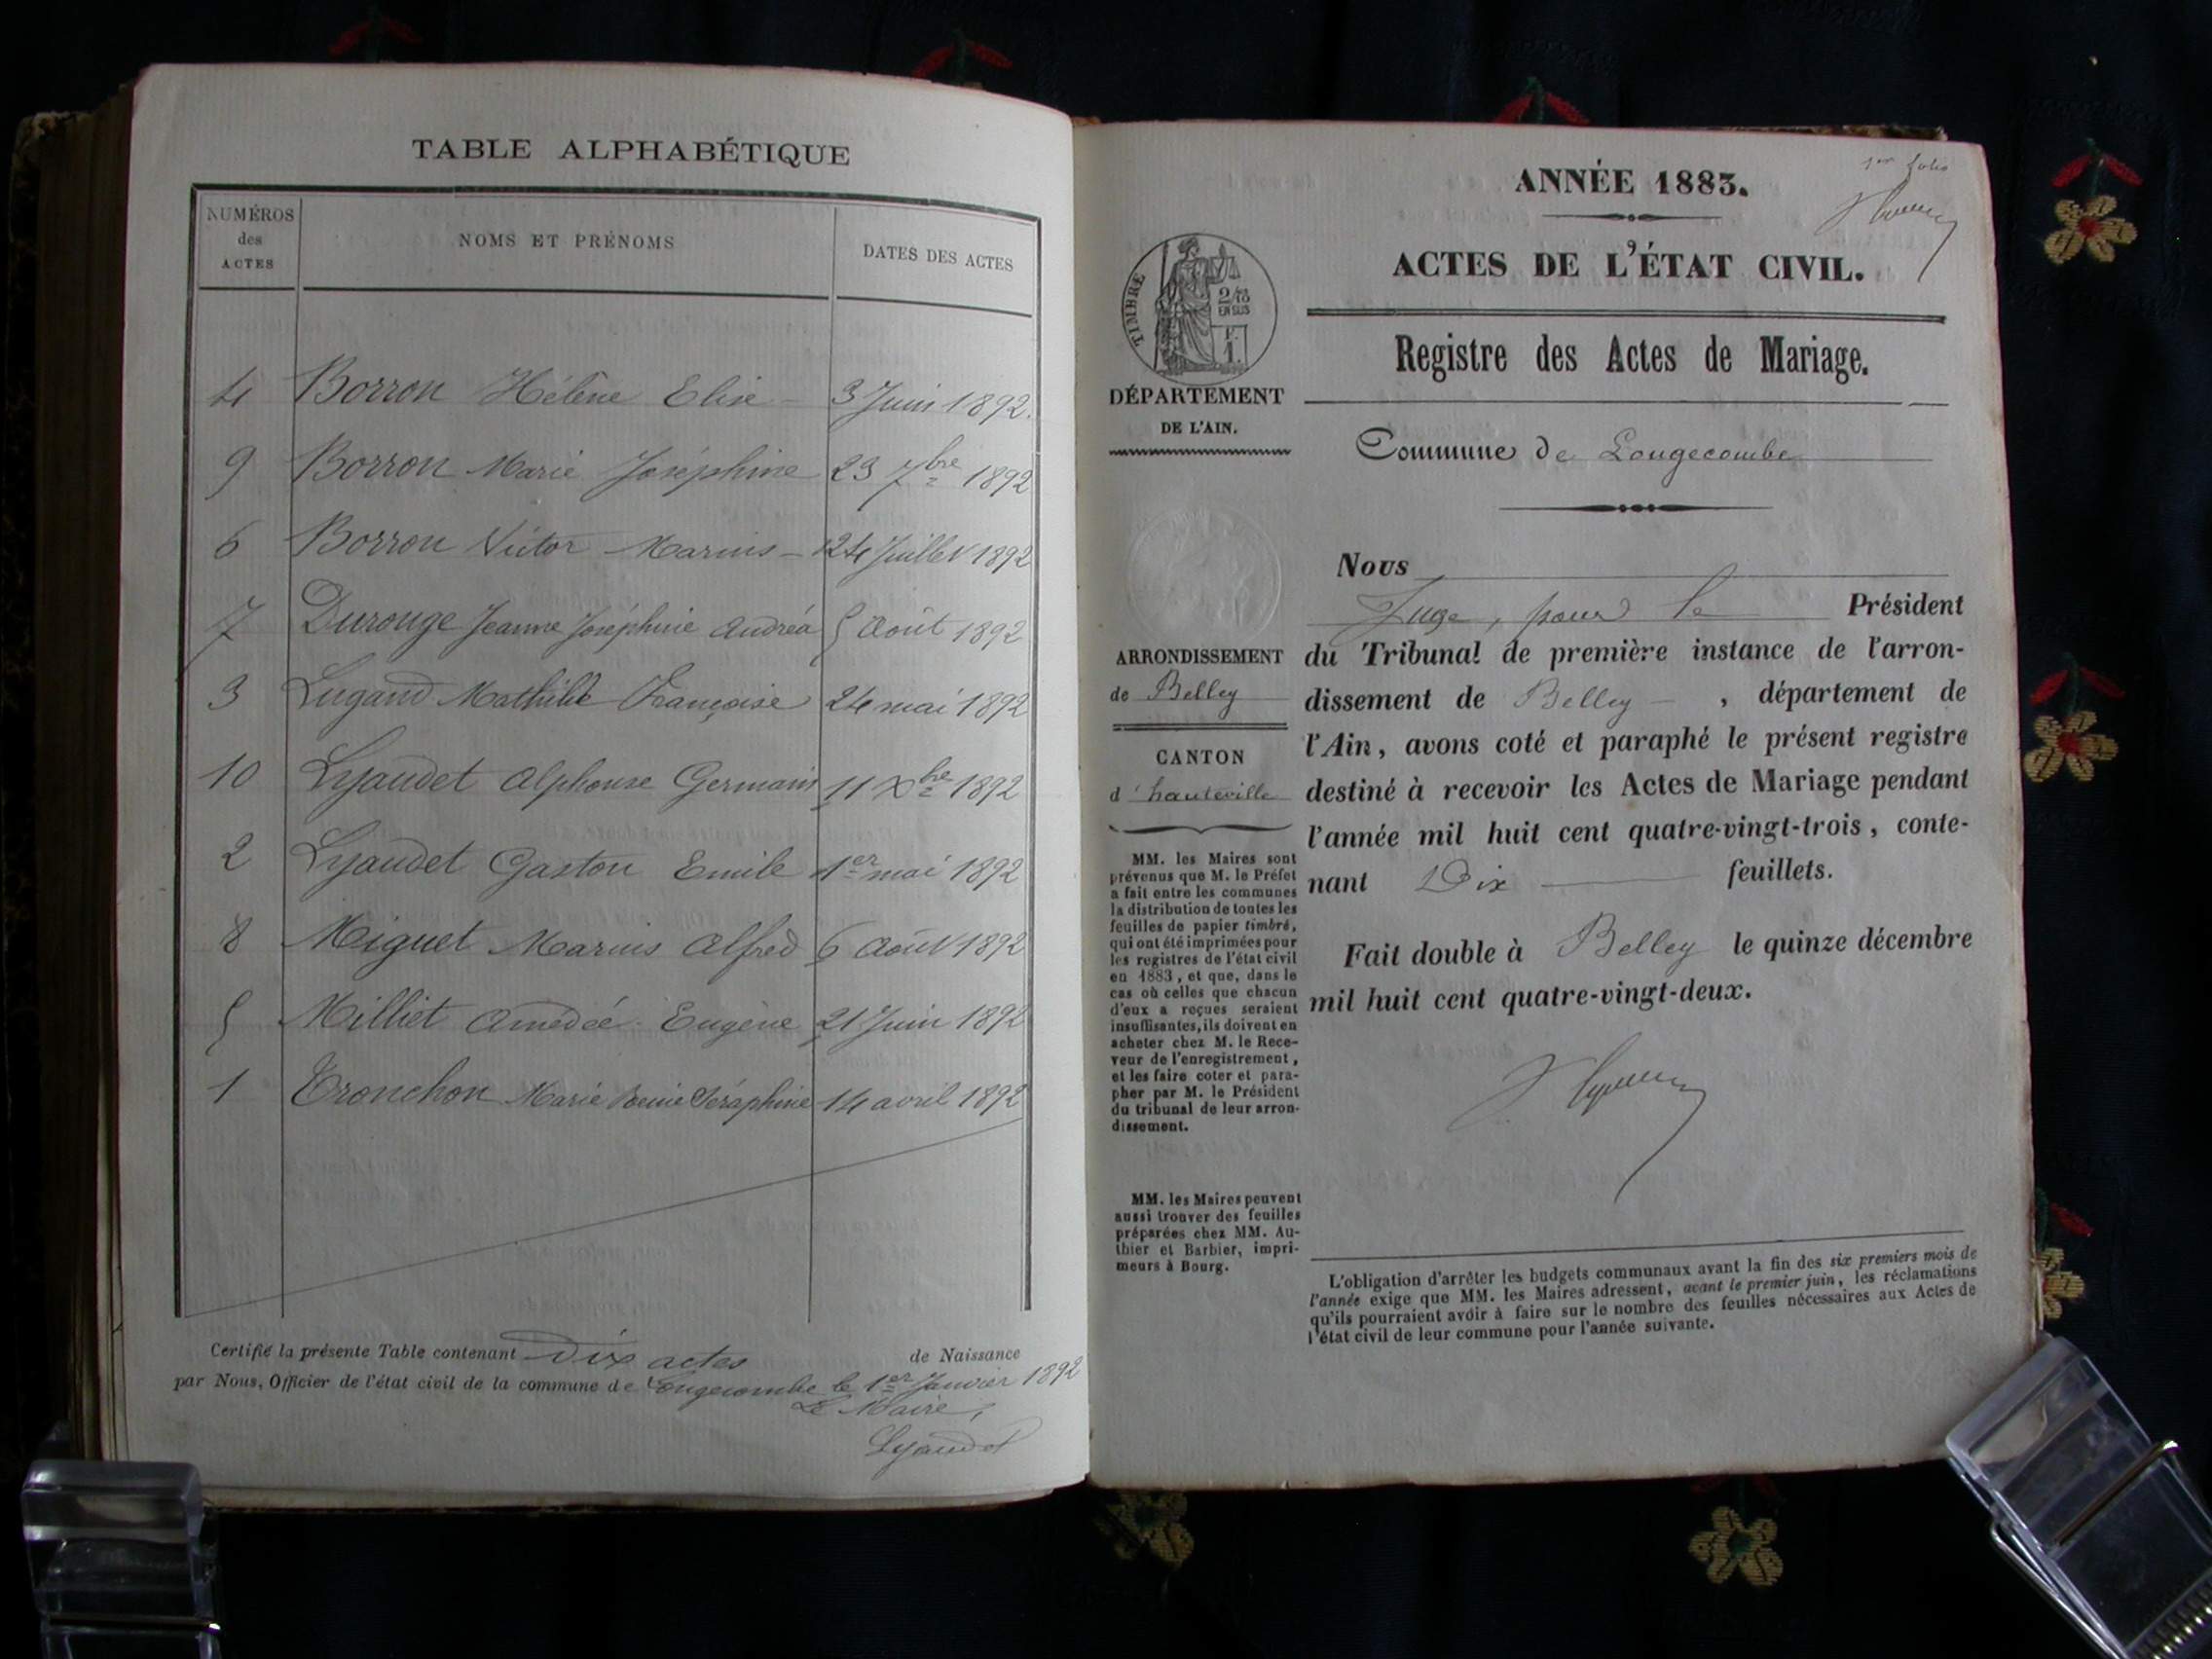 TABLE ALPHABÉTIQUE
NUMÉROS des ACTES
NOMS ET PRÉNOMS
DATES DES ACTES
4 Borron Hélène Elise 3 Juin 1892.
9 Borron Marie Joséphine 23 7bre 1892
6 Borron Victor Marius 24 Juillet 1892
7 Durouge Jeanne Joséphine Andréa 5 Août 1892
3 Lugand Mathilde Françoise 24 mai 1892
10 Lyaudet Alphonse Germain 11 Xbre 1892
2 Lyaudet Gaston Emile 1er mai 1892
8 Miguet Marius Alfred 6 Août 1892
5 Milliet Amédée Eugène 21 Juin 1892
1 Tronchon Marie Séraphine 14 avril 1892
Certifié la présente Table contenant Dix actes de Naissance
par Nous, Officier de l'état civil de la commune de Longecombe le 1er Janvier 1892
Le Maire,
Lyaudet
1er folio
ANNÉE 1883.
ACTES DE L'ÉTAT CIVIL.
Registre des Actes de Mariage.
Commune de Longecombe
TIMBRE
2/10
EN SUS
F.
1.
DÉPARTEMENT
DE L'AIN.
ARRONDISSEMENT
de Belley
CANTON
d'hauteville
MM. les Maires sont
prévenus que M. le Préfet
a fait entre les communes
la distribution de toutes les
feuilles de papier timbré,
qui ont été imprimées pour
les registres de l'état civil
en 1883, et que, dans le
cas où celles que chacun
d'eux a reçues seraient
insuffisantes, ils doivent en
acheter chez M. le Rece-
veur de l'enregistrement,
et les faire coter et para-
pher par M. le Président
du tribunal de leur arron-
dissement.
MM. les Maires peuvent
aussi trouver des feuilles
préparées chez MM. Au-
thier et Barbier, impri-
meurs à Bourg.
Nous
Juge, pour le Président
du Tribunal de première instance de l'arron-
dissement de Belley , département de
l'Ain, avons coté et paraphé le présent registre
destiné à recevoir les Actes de Mariage pendant
l'année mil huit cent quatre-vingt-trois, conte-
nant Dix feuillets.
Fait double à Belley le quinze décembre
mil huit cent quatre-vingt-deux.
L'obligation d'arrêter les budgets communaux avant la fin des six premiers mois de
l'année exige que MM. les Maires adressent, avant le premier juin, les réclamations
qu'ils pourraient avoir à faire sur le nombre des feuilles nécessaires aux Actes de
l'état civil de leur commune pour l'année suivante.